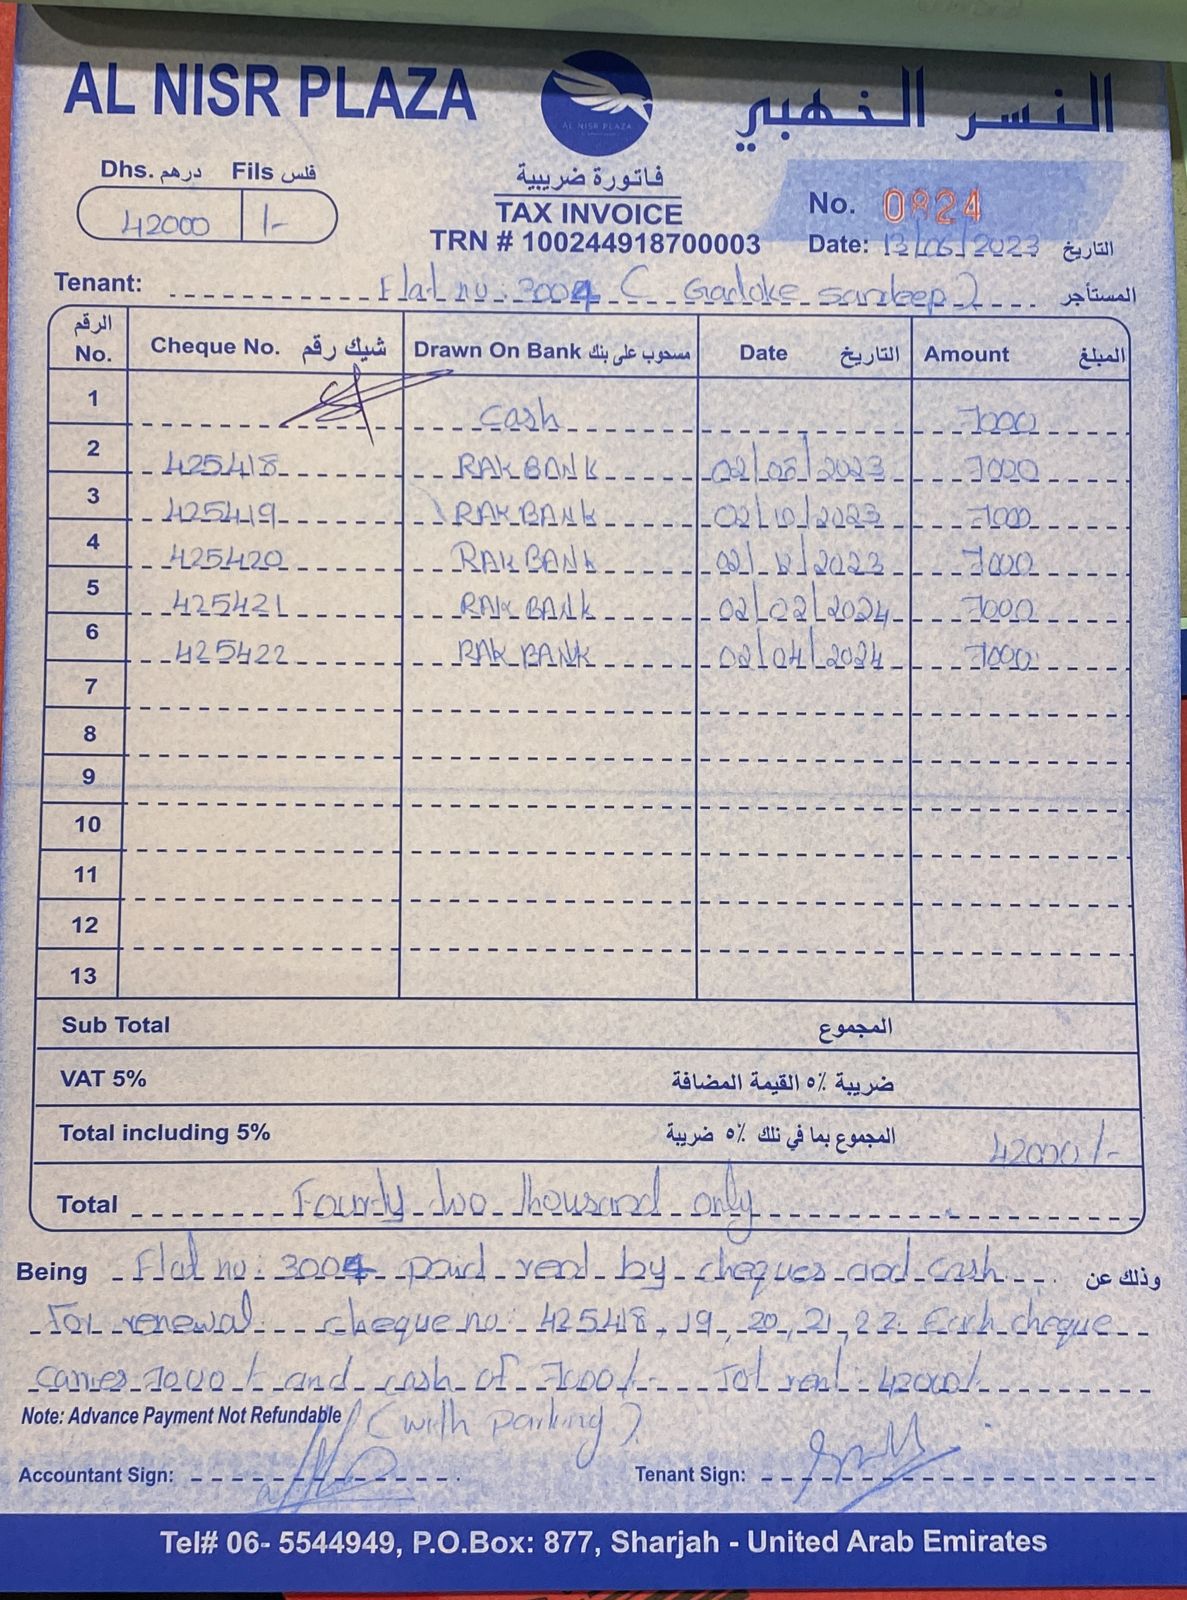 AL NISR PLAZA
AL NISR PLAZA
النسر الذهبي
Dhs. درهم Fils فلس
42000 /-
فاتورة ضريبية
TAX INVOICE
TRN # 100244918700003
No. 0824
Date: 13/06/2023 التاريخ
Tenant: Flat no: 3004 ( Gadoke sandeep ) المستأجر
الرقم No. Cheque No. شيك رقم Drawn On Bank مسحوب على بنك Date التاريخ Amount المبلغ
1 Cash 7000
2 425418 RAK BANK 02/08/2023 7000
3 425419 RAK BANK 02/10/2023 7000
4 425420 RAK BANK 02/12/2023 7000
5 425421 RAK BANK 02/02/2024 7000
6 425422 RAK BANK 02/04/2024 7000
7
8
9
10
11
12
13
Sub Total المجموع
VAT 5% ضريبة ٥٪ القيمة المضافة
Total including 5% المجموع بما في ذلك ٥٪ ضريبة 42000/-
Total Fourty two thousand only
Being Flat no: 3004 paid rent by cheques and cash وذلك عن
For renewal cheque no: 425418, 19, 20, 21, 22. Each cheque
carries 7000/- and cash of 7000/- Tot rent: 42000/-
Note: Advance Payment Not Refundable (with parking)
Accountant Sign: Tenant Sign:
Tel# 06- 5544949, P.O.Box: 877, Sharjah - United Arab Emirates